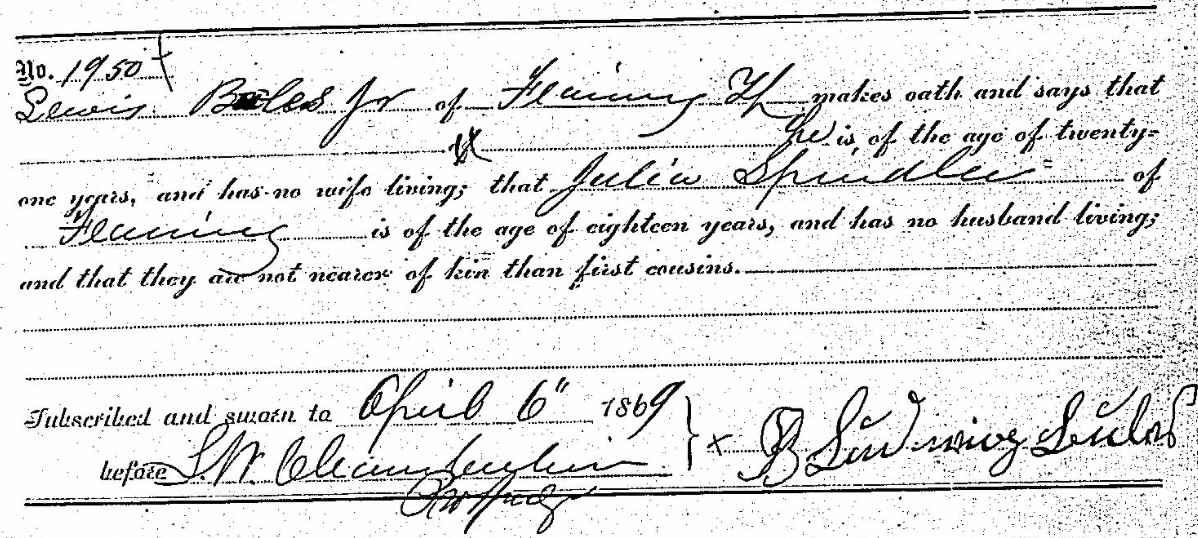 No. 1950
Lewis Beles Jr of Fleming Tp makes oath and says that
he is of the age of twenty-
one years, and has no wife living; that Julia Spindler of
Fleming is of the age of eighteen years, and has no husband living;
and that they are not nearer of kin than first cousins.
Subscribed and sworn to April 6" 1869
before S. W. Chamberlain
Ludwig